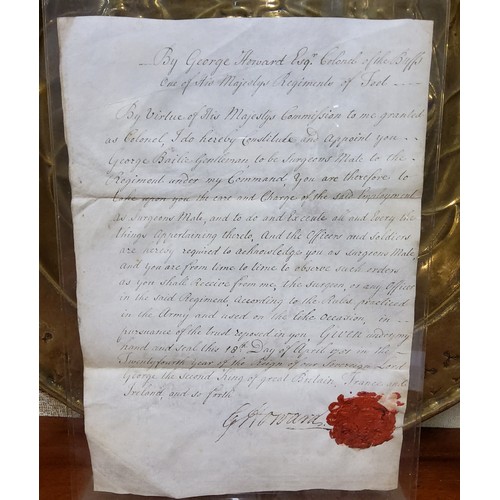 By George Howard Esqr. Colonel of the Buffs
One of His Majestys Regiments of Foot
By Virtue of His Majestys Commission to me granted
as Colonel, I do hereby Constitute and Appoint you
George Bailie Gentleman, to be Surgeons Mate to the
Regiment under my Command, You are therefore to
take upon you the care and Charge of the said Employment
as Surgeons Mate, and to do and Execute all and Every the
things Appertaining thereto, And the Officers and Soldiers
are hereby required to acknowledge you as Surgeons Mate,
and you are from time to time to observe such orders
as You shall Receive from me, the Surgeon, or any Officer
in the said Regiment, According to the Rules practised
in the Army and used on the like Occasion, in
pursuance of the trust reposed in you, Given under my
hand and seal this 18th. Day of April 1751 in the
Twentyfourth year of the Reign of our Sovereign Lord
George the Second King of great Britain, France and
Ireland, and so forth
G Howard